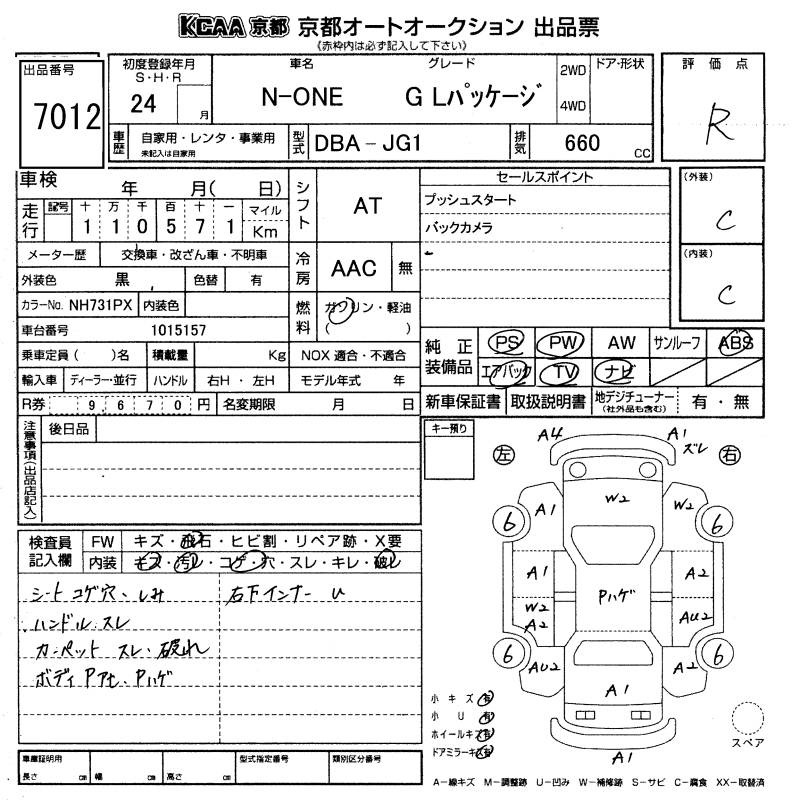 KCAA 京都 京都オートオークション 出品票
《赤枠内は必ず記入して下さい》
出品番号
7012
初度登録年月
S・H・R
24
月
車名
グレード
N-ONE G Lパッケージ
2WD
4WD
ドア・形状
評価点
R
車歴
自家用・レンタ・事業用
未記入は自家用
型式
DBA-JG1
排気
660
cc
車検 年 月( 日)
走行
記号 十 万 千 百 十 一 マイル
1 1 0 5 7 1 Km
メーター歴
交換車・改ざん車・不明車
外装色
黒
色替
有
カラーNo. NH731PX
内装色
車台番号
1015157
乗車定員( )名
積載量
Kg
輸入車
ディーラー・並行
ハンドル
右H ・ 左H
R券 9,670 円
名変期限 月 日
シフト
AT
冷房
AAC
無
燃料
ガソリン・軽油
( )
NOX 適合・不適合
モデル年式 年
セールスポイント
プッシュスタート
バックカメラ
(外装)
C
(内装)
C
純正装備品
PS PW AW サンルーフ ABS
エアバック TV ナビ
新車保証書
取扱説明書
地デジチューナー
(社外品も含む)
有・無
注意事項(出品店記入)
後日品
キー預り
検査員記入欄
FW キズ・飛石・ヒビ割・リペア跡・X要
内装 キズ・汚レ・コゲ・穴・スレ・キレ・破レ
シート コゲ穴、しみ
右下インナー U
ハンドル スレ
カーペット スレ、破れ
ボディ Pハゲ
左
右
A4
A1
ズレ
A1 W2 W2
6 6
A1 A2
Pハゲ
W2
A2
AU2
6 6
AU2 A2
A1
A1
スペア
小キズ 有
小U 有
ホイールキズ 有
ドアミラーキズ 有
車庫証明用
長さ cm 幅 cm 高さ cm
型式指定番号
類別区分番号
A-線キズ M-調整跡 U-凹み W-補修跡 S-サビ C-腐食 XX-取替済